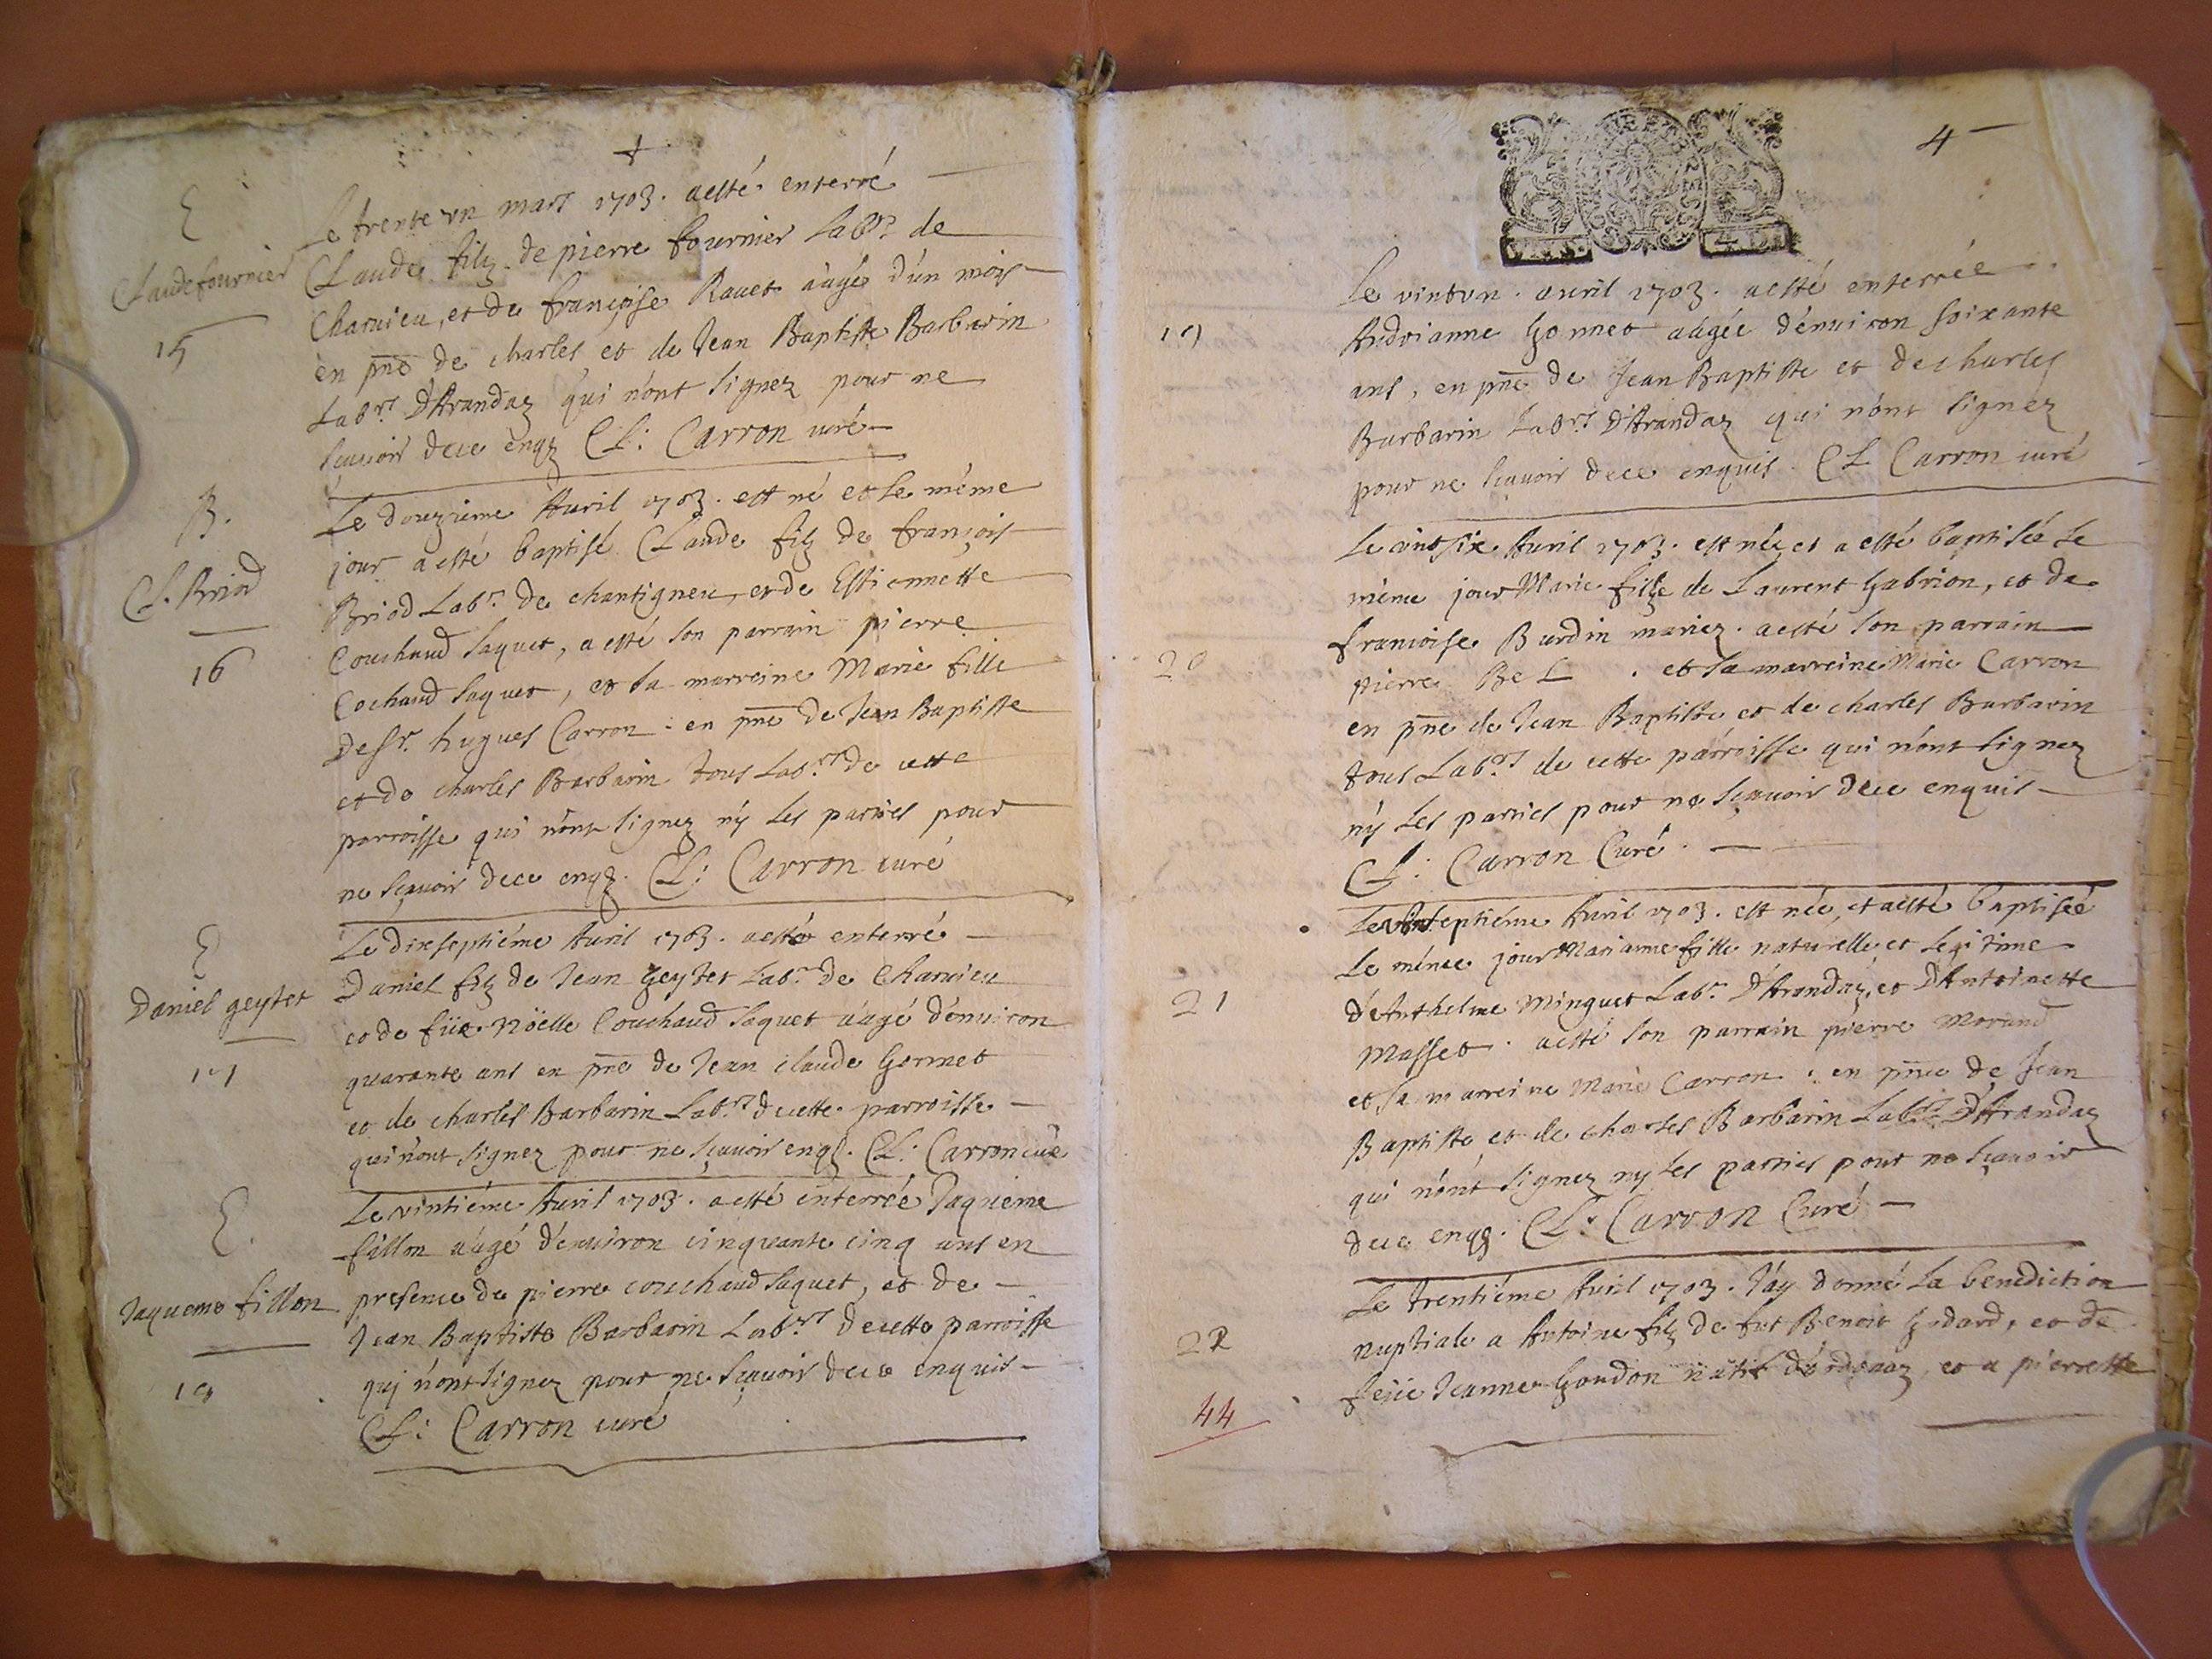 E
Claude fournier
15
Le trente vn mars 1703. a esté enterré
Claude filz de pierre fournier Lab.r de
Charuieu, et de françoise Rauet aágé d'un mois
en pñce de charles et de Jean Baptiste Barbarin
Lab.rs D'Arandaz qui n'ont signez pour ne
sçauoir de ce enqz CL: Carron curé
B.
Cl. Briod
16
Le douzieme Auril 1703. est né et le méme
jour a esté baptisé Claude filz de françois
Briod Lab.r de chantigneu, et de Estiennette
Couchaud saquet, a esté son parrain pierre
Cochaud saquet, et sa marreine Marie fille
de sr. hugues Carron: en pñce de Jean Baptiste
et de charles Barbarin tous Lab.rs de cette
parroisse qui n'ont signez ny les parties pour
ne sçauoir de ce enqz. CL: Carron curé
E
Daniel geytet
17
Le dixseptiéme Auril 1703. a esté enterré
Daniel filz de Jean geytet Lab.r de Charuieu
et de füe Nöelle Couchaud saquet aágé d'enuiron
quarante ans en pñce de Jean claude Gonnet
et de charles Barbarin Lab.rs de cette parroisse
qui n'ont signez pour ne sçauoir enqz. CL: Carron curé
E.
Jaqueme fillon
18
Le vintiéme Auril 1703. a esté enterrée Jaquéme
fillon aágé d'enuiron cinquante cinq ans en
presence de pierre couchaud saquet, et de
Jean Baptiste Barbarin Lab.rs de cette parroisse
qui n'ont signez pour ne sçauoir de ce enquis
CL: Carron curé
4
19
Le vintvn. auril 1703. a esté enterrée
Andrianne Gonnet aágée d'enuiron soixante
ans, en pñce de Jean Baptiste et de charles
Barbarin Lab.rs D'Arandaz qui n'ont signez
pour ne sçauoir de ce enquis. CL Carron curé
20
Le vintsix Auril 1703. est née et a esté baptisée le
méme jour Marie fille de Laurent Gabrion, et de
francoise Burdin mariez. a esté son parrain
pierre BeL . et sa marreine Marie Carron
en pñce de Jean Baptiste et de charles Barbarin
tous Lab.rs de cette parroisse qui n'ont signez
ny les parties pour ne sçauoir de ce enquis
CL: Carron Curé.
21
Le vintseptiéme Auril 1703. est née, et a esté baptisée
le méme jour Marianne fille naturelle et legitime
d'Anthelme Minguet Lab.r D'Arandaz, et D'Antoinette
Masset. a esté son parrain pierre Morand
et sa marreine Marie Carron. en pñce de Jean
Baptiste et de charles Barbarin Lab.rs D'Arandaz
qui n'ont signez ny les parties pour ne sçauoir
de ce enqz. CL: Carron Curé
22
Le trentiéme Auril 1703. J'ay donné la benediction
nuptiale a Antoine filz de fut Benoit Godard, et de
feüe Jeanne Goudon natif d'ordonaz, et a pierrette
44